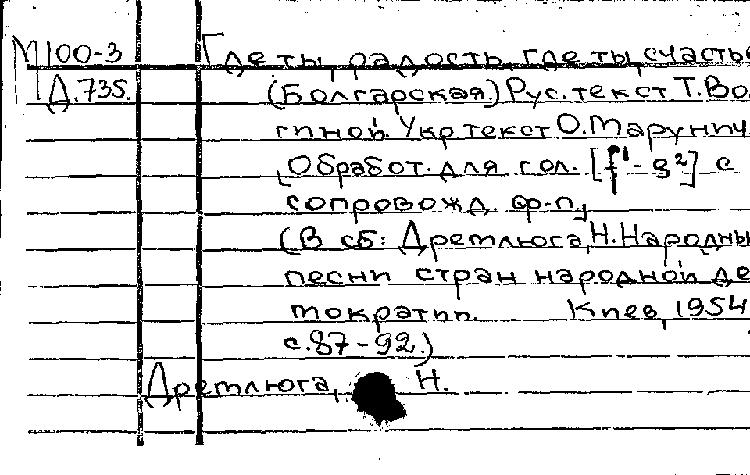 М100-3 Где ты, радость, где ты, счастье
Д.735. (Болгарская.) Рус. текст Т. Во
гиной. Укр текст О. Марунич.
Обработ. для гол. [f¹-g²] с
сопровожд. ф-п.
(В сб: Дретлюга, Н. Народны
песни стран народной де
мократии. Киев, 1954
с.87-92.)
Дретлюга, Н.